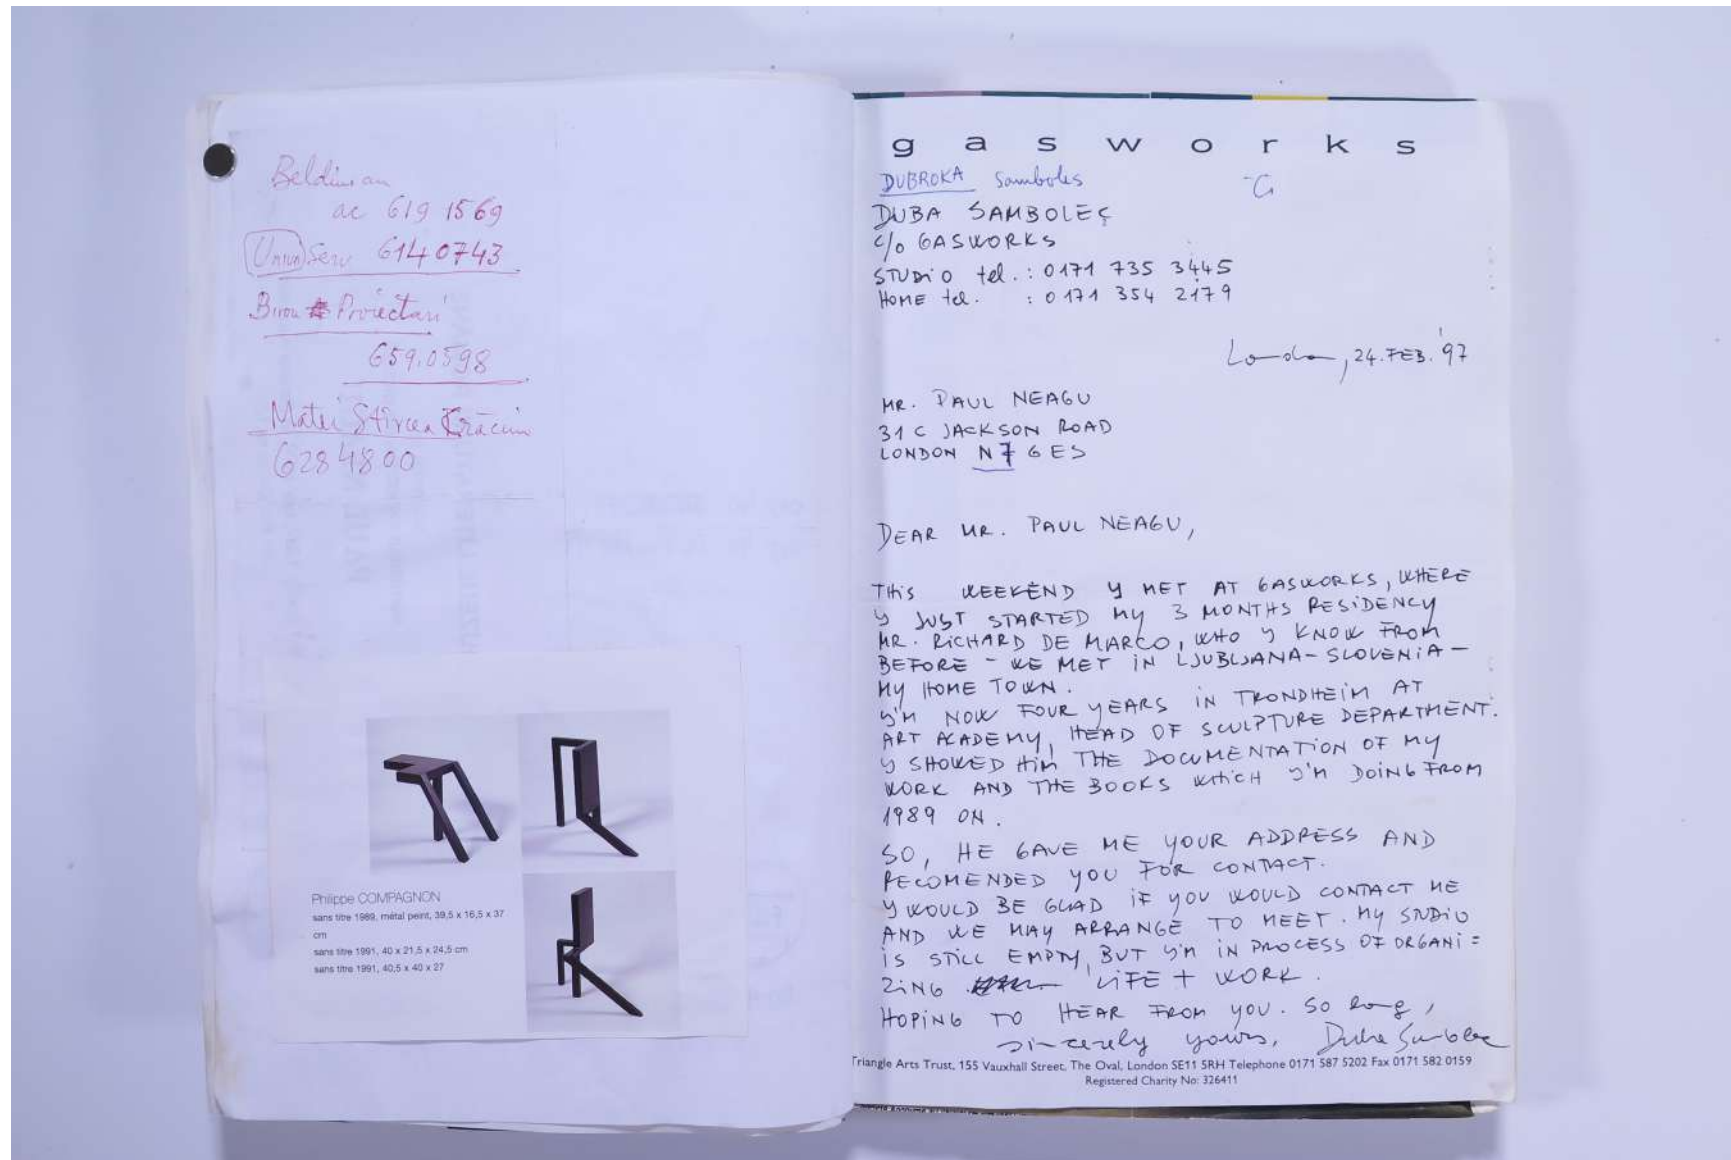 Beldiman
ac 619 1569
Union Serv 6140743
Birou Proiectari
659.0598
Matei Stircea Crăciun
6284800
Philippe COMPAGNON
sans titre 1989, métal peint, 39,5 x 16,5 x 37
cm
sans titre 1991, 40 x 21,5 x 24,5 cm
sans titre 1991, 40,5 x 40 x 27
gasworks
DUBROKA Samboles
DUBA SAMBOLEÇ
c/o GASWORKS
STUDiO tel.: 0171 735 3445
HOME tel. : 0171 354 2179
London, 24. FEB. '97
MR. PAUL NEAGU
31 C JACKSON ROAD
LONDON N7 6ES
DEAR MR. PAUL NEAGU,
THiS WEEKEND Y MET AT GASWORKS, WHERE
Y JUST STARTED MY 3 MONTHS RESiDENCY
MR. RiCHARD DE MARCO, WHO Y KNOW FROM
BEFORE - WE MET iN LJUBLJANA-SLOVENiA-
MY HOME TOWN.
Y'M NOW FOUR YEARS iN TRONDHEiM AT
ART ACADEMY, HEAD OF SCULPTURE DEPARTMENT.
Y SHOWED HiM THE DOCUMENTATiON OF MY
WORK AND THE BOOKS WHiCH Y'M DOiNG FROM
1989 ON.
SO, HE GAVE ME YOUR ADDRESS AND
RECOMENDED YOU FOR CONTACT.
Y WOULD BE GLAD iF YOU WOULD CONTACT ME
AND WE MAY ARRANGE TO MEET. MY STUDiO
iS STiLL EMPTY, BUT Y'M iN PROCESS OF ORGANi=
ZiNG LiFE + WORK.
HOPiNG TO HEAR FROM YOU. So long,
sincerely yours, Duba Sambolec
Triangle Arts Trust, 155 Vauxhall Street, The Oval, London SE11 5RH Telephone 0171 587 5202 Fax 0171 582 0159
Registered Charity No: 326411